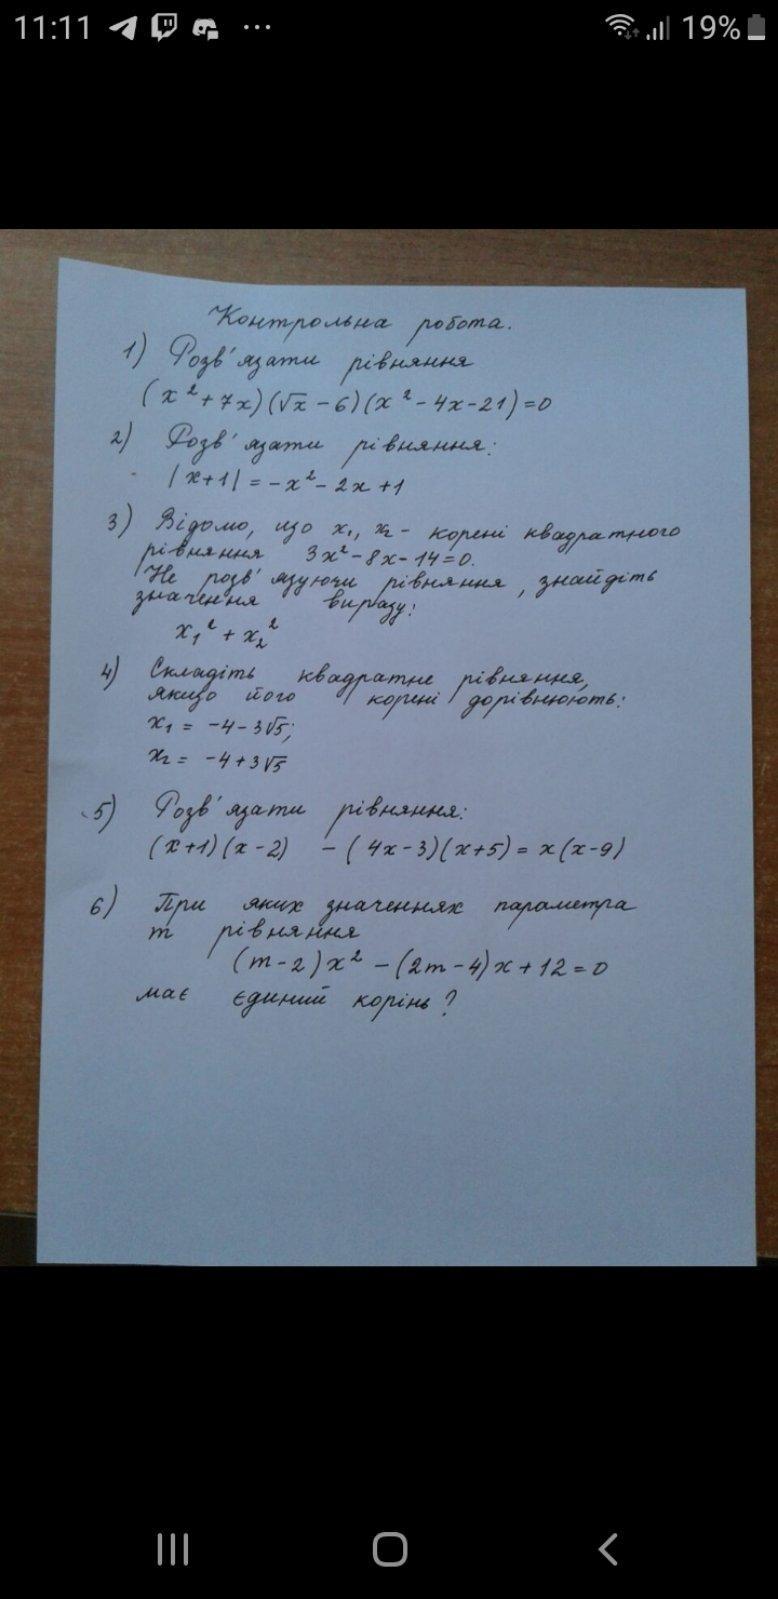 11:11 ... 19%
Контрольна робота.
1) Розв'язати рівняння
(x²+7x)(√x-6)(x²-4x-21)=0
2) Розв'язати рівняння:
|x+1|=-x²-2x+1
3) Відомо, що x₁, x₂ - корені квадратного
рівняння 3x²-8x-14=0.
Не розв'язуючи рівняння, знайдіть
значення виразу:
x₁²+x₂²
4) Складіть квадратне рівняння,
якщо його корені дорівнюють:
x₁ = -4-3√5;
x₂ = -4+3√5
5) Розв'язати рівняння:
(x+1)(x-2) -(4x-3)(x+5)=x(x-9)
6) При яких значеннях параметра
m рівняння
(m-2)x²-(2m-4)x+12=0
має єдиний корінь?